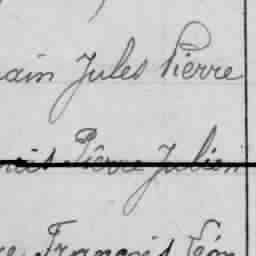 ain Jules Pierre
Pierre Julien
François Léon